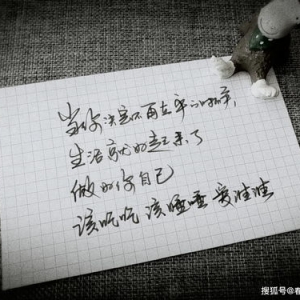 当你决定不再在乎的时候，
生活就好起来了
做好你自己
该吃吃 该睡睡 爱谁谁
搜狐号@春